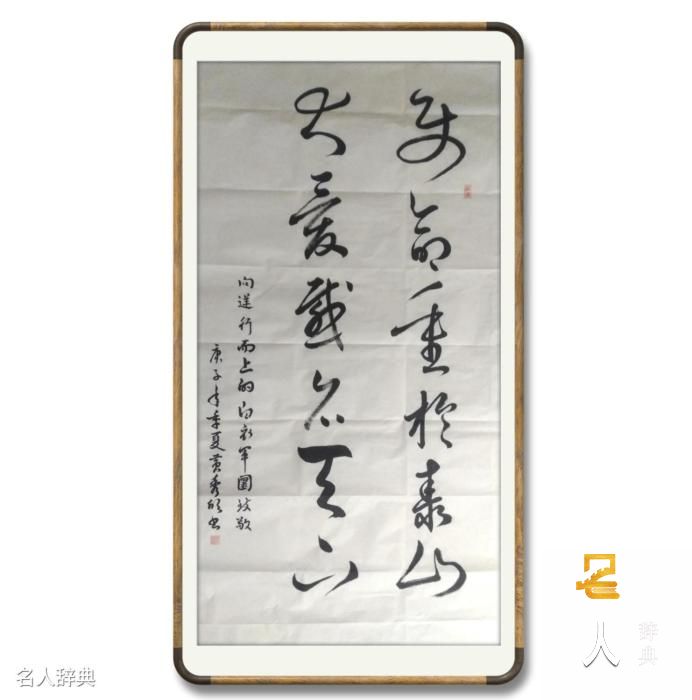 使命重於泰山
大愛感天下
向逆行而上的白衣軍團致敬
庚子年季夏黄秀书
名人辞典
名人辞典